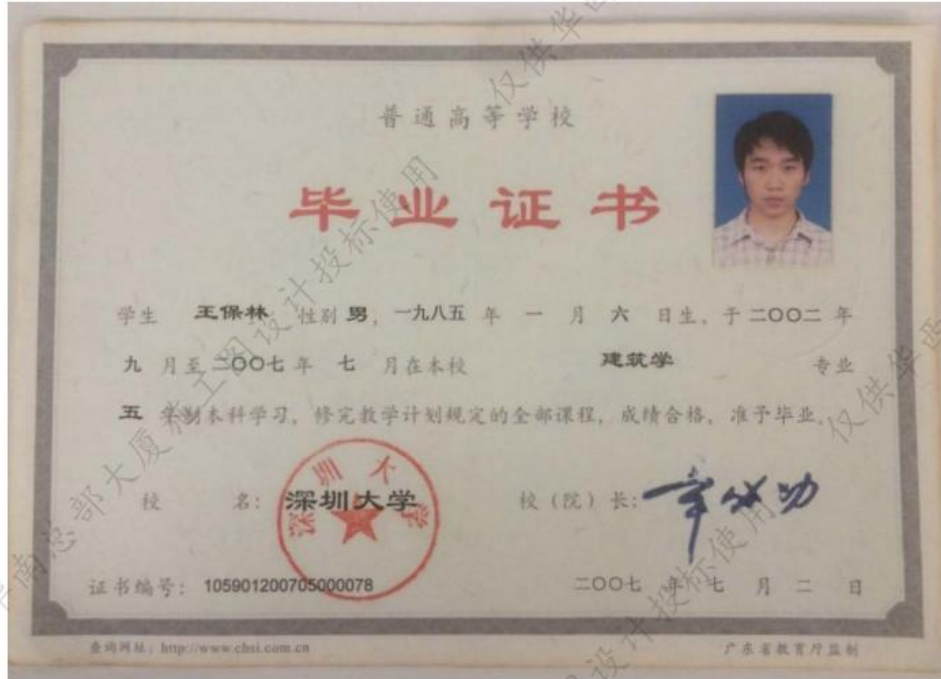 普通高等学校
毕业证书
学生 王保林 性别 男，一九八五 年 一 月 六 日生，于二〇〇二 年
九 月至二〇〇七 年 七 月在本校 建筑学 专业
五 年制本科学习，修完教学计划规定的全部课程，成绩合格，准予毕业。
校 名：深圳大学 校（院）长：
深圳大学
证书编号：105901200705000078 二〇〇七 年 七 月 二 日
查询网址：http://www.chsi.com.cn 广东省教育厅监制
仅供华西
大厦施工图设计投标使用
仅供华西
设计投标使用